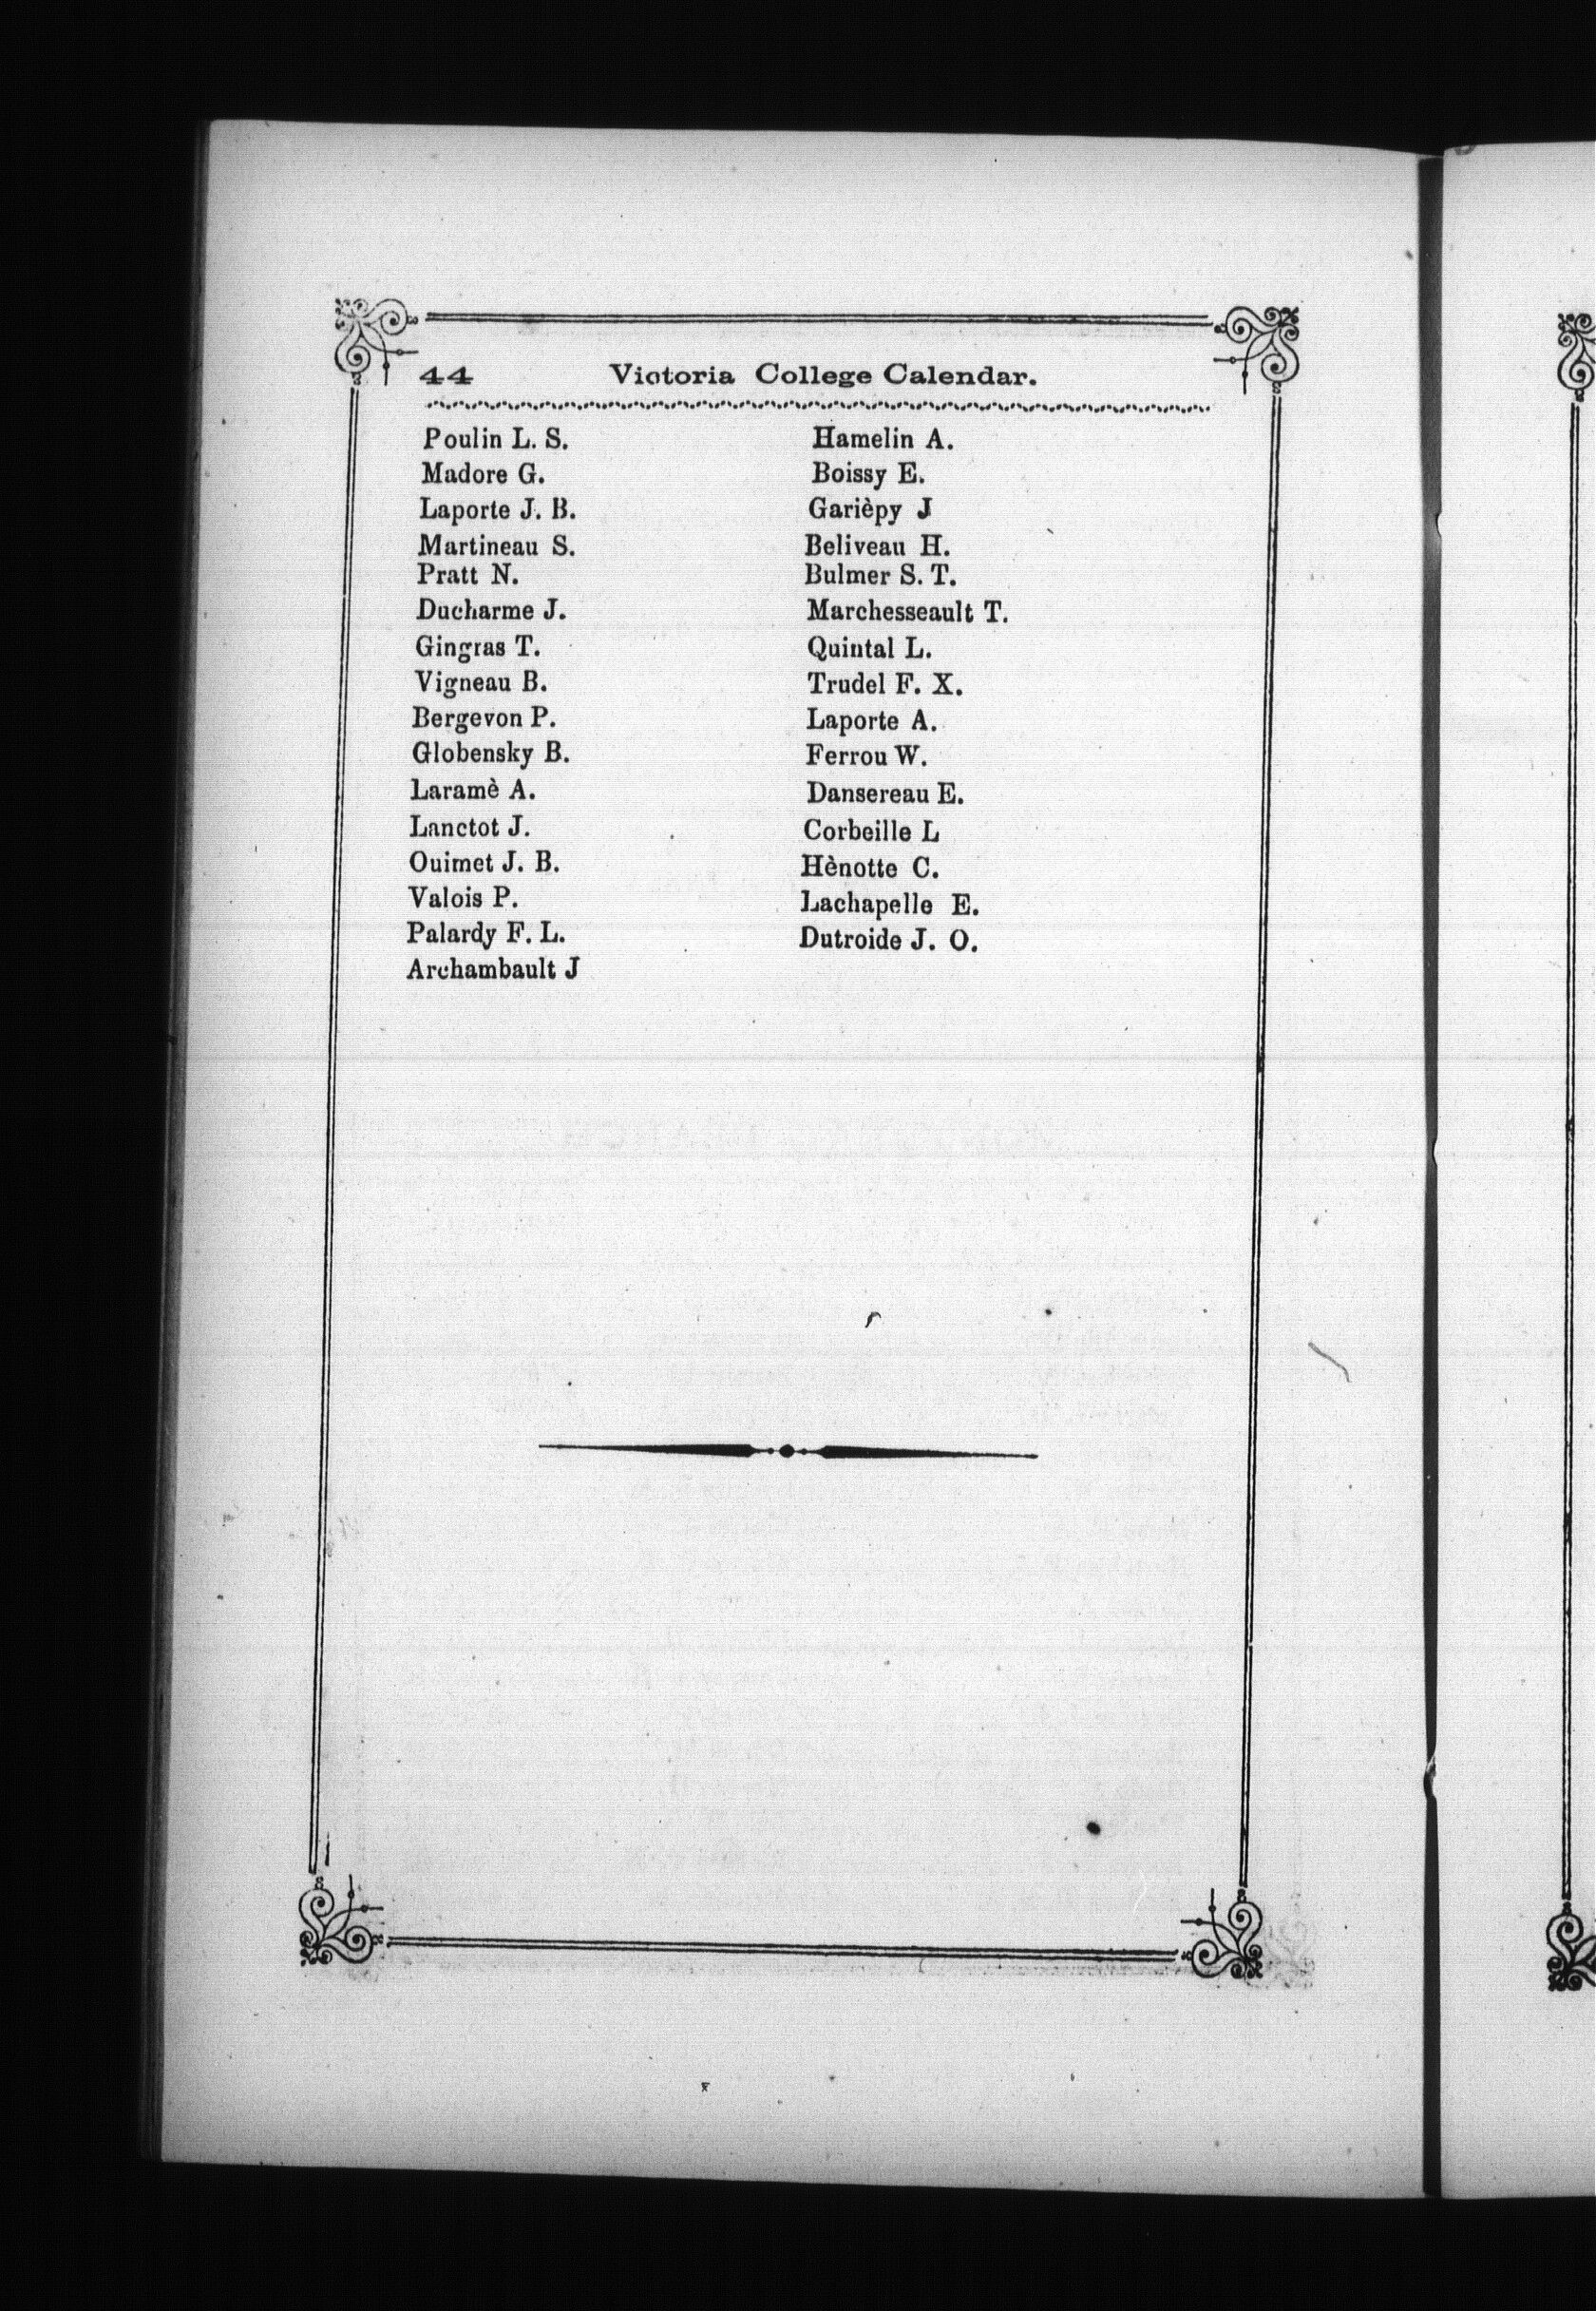 44 Victoria College Calendar.
Poulin L. S.
Madore G.
Laporte J. B.
Martineau S.
Pratt N.
Ducharme J.
Gingras T.
Vigneau B.
Bergevon P.
Globensky B.
Laramè A.
Lanctot J.
Ouimet J. B.
Valois P.
Palardy F. L.
Archambault J
Hamelin A.
Boissy E.
Garièpy J
Beliveau H.
Bulmer S. T.
Marchesseault T.
Quintal L.
Trudel F. X.
Laporte A.
Ferrou W.
Dansereau E.
Corbeille L
Hènotte C.
Lachapelle E.
Dutroide J. O.